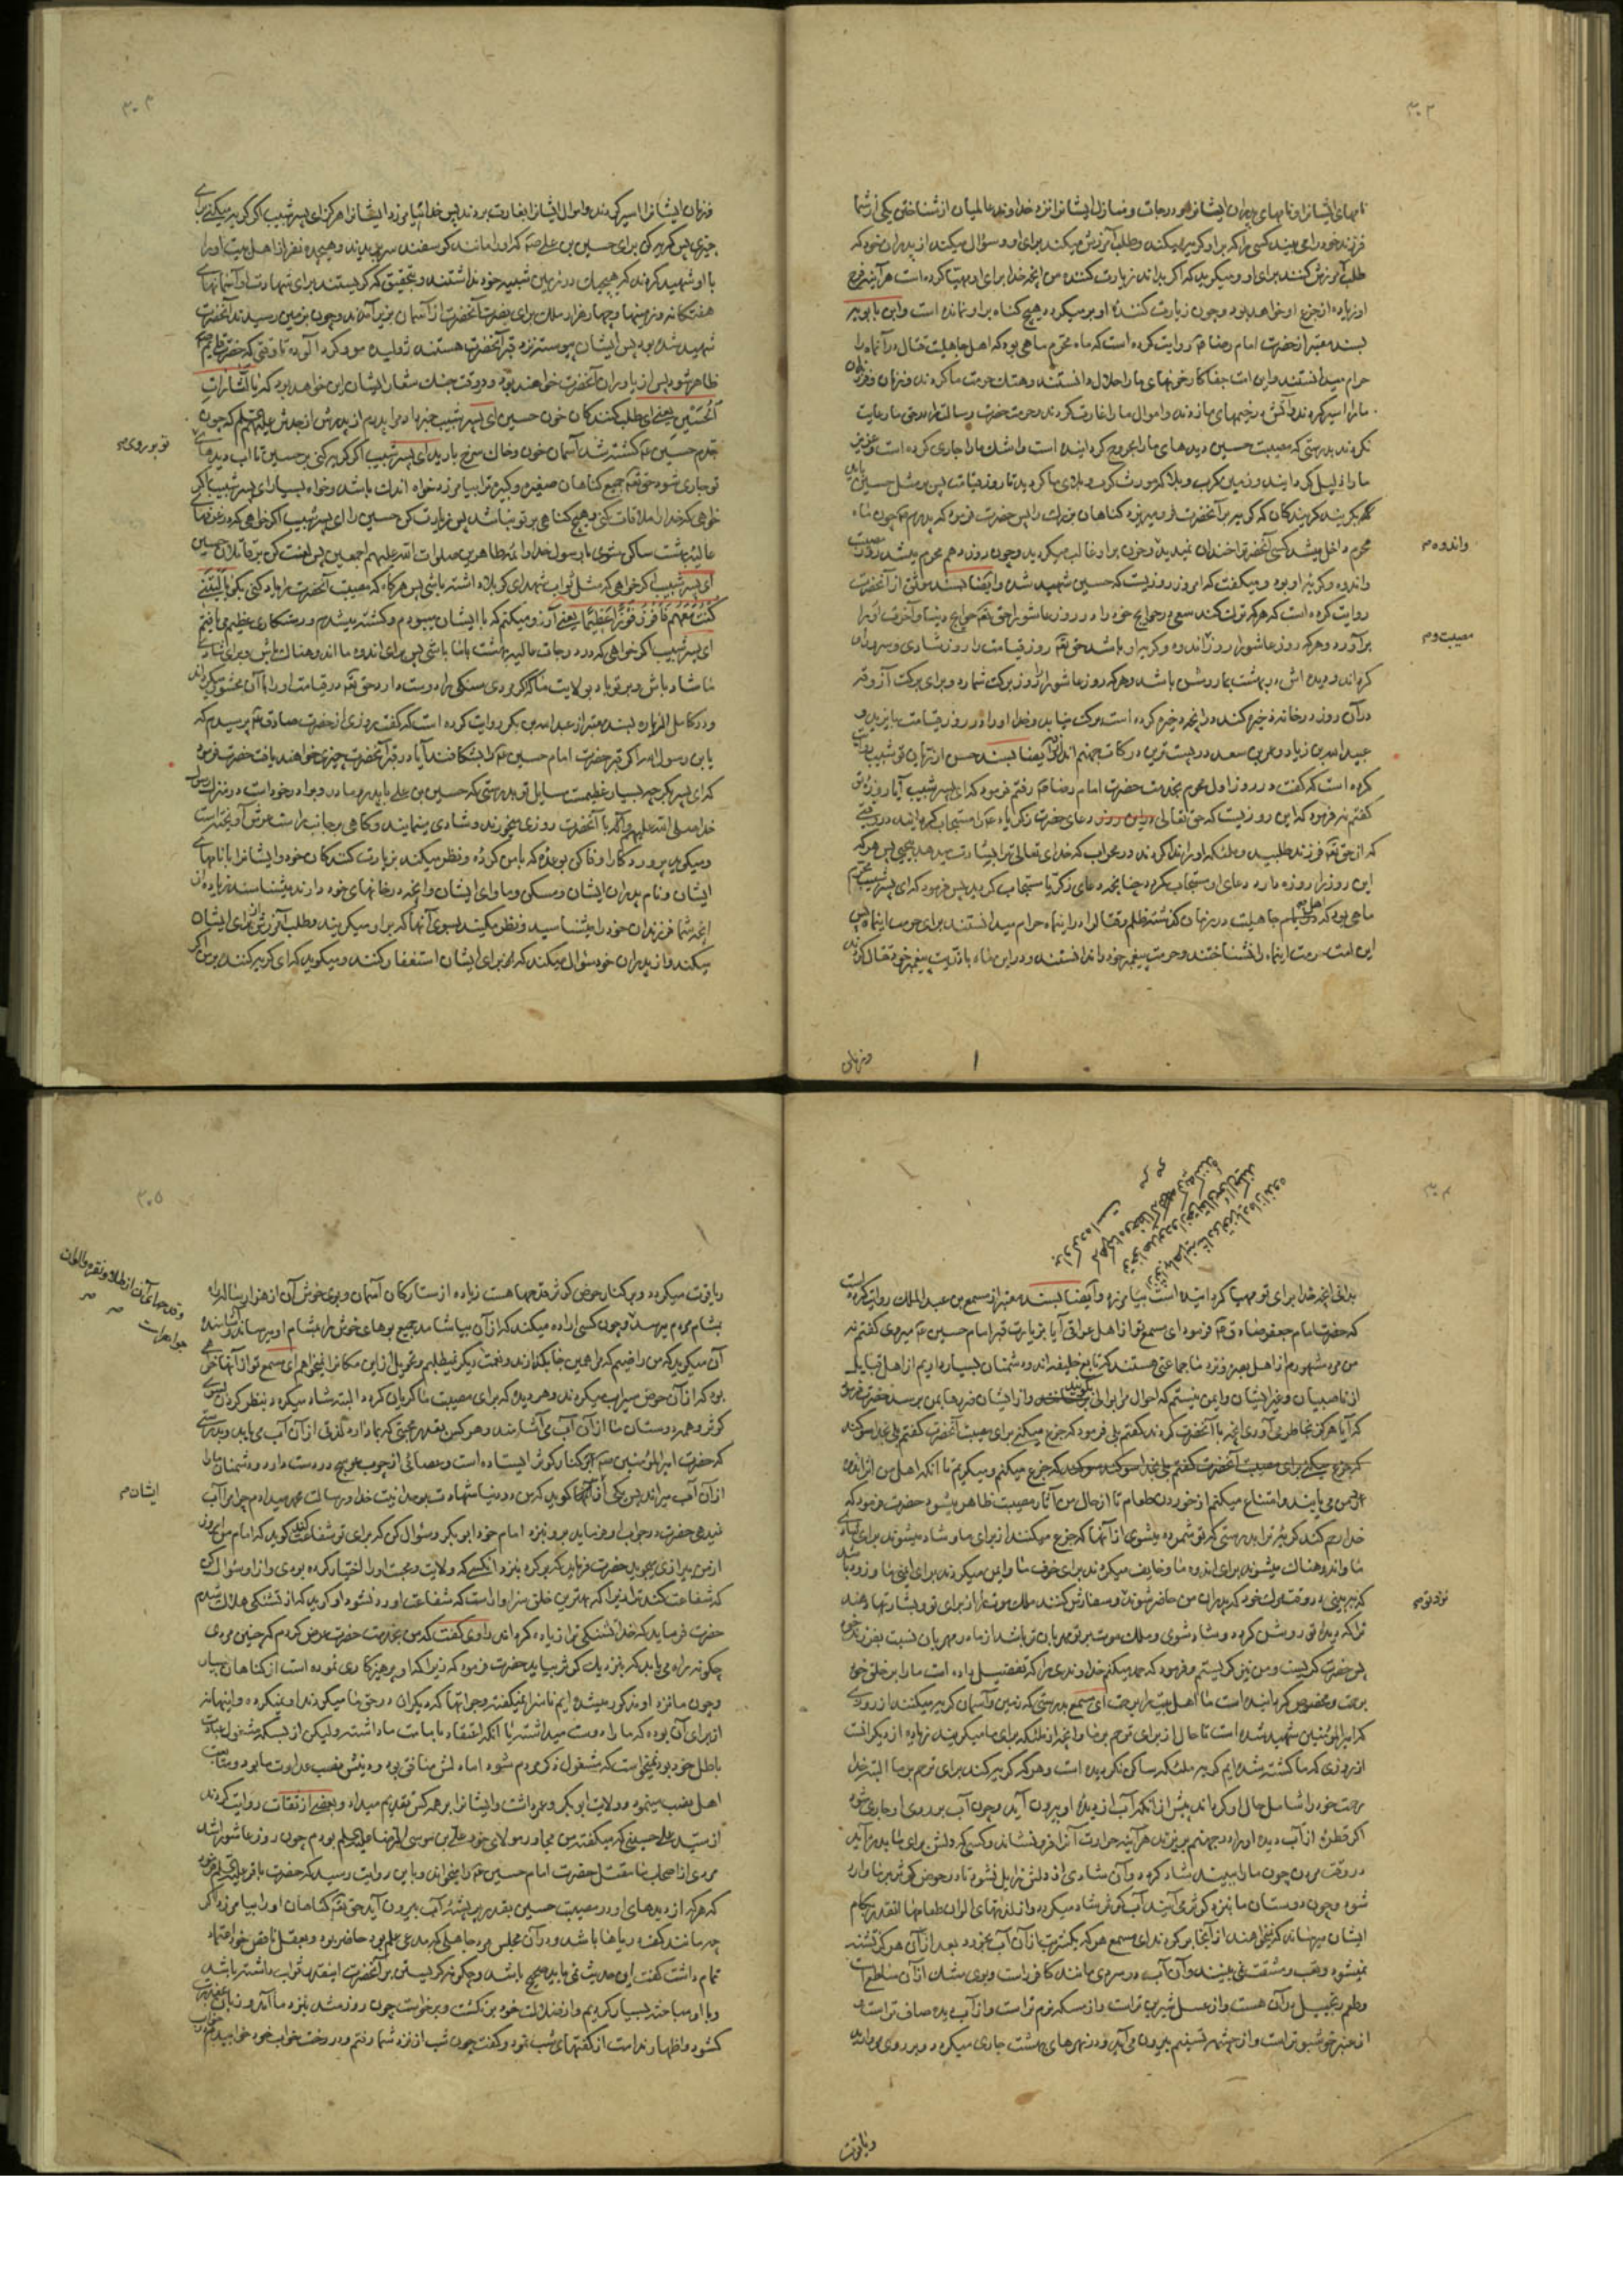 ۳۰۲
نامهای ایشانرا و نامهای پدران ایشانرا و درجات و منازل ایشانرا نزد خداوند عالمیان از شناختن یکی از شما
فرزند خود را و می بیند کسی را که بر او گریه میکند و طلب آمرزش میکند برای او و سؤال میکند از پدران خود که
طلب آمرزش کنند برای او و میگوید که اگر بداند زیارت کننده من آنچه خدا برای او مهیا کرده است هرآینه فرح
او زیاده از جزع او خواهد بود و چون زیارت کنندهٔ او برمیگردد هیچ گناه بر او نمانده است و ابن بابویه
بسند معتبر از حضرت امام رضا روایت کرده است که ماه محرم ماهی بود که اهل جاهلیت قتال در آن ماه را
حرام میدانستند و این امت جفاکار خونهای ما را حلال دانستند و هتک حرمت ما کردند و زنان و فرزندان
ما را اسیر کردند و آتش در خیمهای ما زدند و اموال ما را غارت کردند و حرمت حضرت رسالت را در حق ما رعایت
نکردند بدرستی که مصیبت حسین دیدهای ما را مجروح گردانیده است و اشک ما را جاری کرده است و عزیز
ما را ذلیل گردانیده و زمین کرب و بلا مورث کرب و بلای ما گردید تا روز قیامت پس بر مثل حسین باید
بگریند گریه کنندگان که گریه بر آنحضرت فرو میریزد گناهان بزرگ را پس حضرت فرمود که پدرم چون ماه
محرم داخل میشد کسی آنحضرت را خندان نمیدید و حزن بر او غالب میگردید و چون روز دهم محرم میشد روز مصیبت
و اندوه و گریه او بود و میگفت که امروز روزیست که حسین شهید شده و ایضا بسند موثق از آنحضرت
روایت کرده است که هرکه ترک کند سعی در حوایج خود را در روز عاشورا حق تعالی حوایج دنیا و آخرت او را
برآورد و هرکه روز عاشورا روز اندوه و گریه او باشد حق تعالی روز قیامت را روز شادی و سرور او
گرداند و دیده اش در بهشت بما روشن باشد و هرکه روز عاشورا را روز برکت شمارد و برای برکت آزوقه
در آن روز در خانه ذخیره کند در آنچه ذخیره کرده است برکت نیابد و خدا او را در روز قیامت با یزید و
عبید الله بن زیاد و عمر بن سعد در پست ترین درکات جهنم اندازد و ایضا بسند حسن از ریان بن شبیب روایت
کرده است که گفت در روز اول محرم بخدمت حضرت امام رضا رفتم فرمود که ای پسر شبیب آیا روزهٔ
گفتم نه فرمود که این روزیست که حق تعالی دعای حضرت زکریا را مستجاب گردانید در وقتی
که از حق تعالی فرزند طلبید و ملئکه او را ندا کردند در محراب که خدای تعالی ترا بشارت میدهد بیحیی پس هرکه
این روز را روزه دارد دعای او مستجاب گردد چنانچه دعای زکریا مستجاب گردید پس فرمود که ای پسر شبیب محرم
ماهی بود که اهل جاهلیت در زمان گذشته ظلم و قتال را در این ماه حرام میدانستند برای حرمت این ماه پس
این امت حرمت این ماه را نشناختند و حرمت پیغمبر خود را ندانستند و در این ماه با ذریت پیغمبر خود قتال کردند
و اندوه م
مصیبت و م
و زنان
۳۰۳
و زنان ایشانرا اسیر کردند و اموال ایشانرا بغارت بردند پس خدا نیامرزد ایشانرا هرگز ای پسر شبیب اگر گریه میکنی برای
چیزی پس گریه کن برای حسین بن علی که او را مانند گوسفند سر بریدند و هیجده نفر از اهل بیت او را
با او شهید کردند که هیچیک در زمین شبیه خود نداشتند و بتحقیق که گریستند برای شهادت او آسمانهای
هفتگانه و زمینها و چهار هزار ملک برای نصرت آنحضرت از آسمان بزیر آمدند و چون بزمین رسیدند آنحضرت
شهید شده بود پس ایشان پیوسته نزد قبر آنحضرت هستند ژولیده مو و گرد آلوده تا وقتی که حضرت قایم
ظاهر شود پس از یاوران آنحضرت خواهند بود و در وقت جنک شعار ایشان این خواهد بود که یا لثارات
الحسین یعنی ای طلب کنندگان خون حسین ای پسر شبیب خبر داد مرا پدرم از پدرش از جدش که چون
جدم حسین کشته شد آسمان خون و خاک سرخ بارید ای پسر شبیب اگر گریه کنی بر حسین تا آب دیدهای
تو جاری شود حق تعالی جمیع گناهان صغیره و کبیره ترا بیامرزد خواه اندک باشد و خواه بسیار ای پسر شبیب اگر
خواهی که خدا را ملاقات کنی و هیچ گناهی بر تو نباشد پس زیارت کن حسین را ای پسر شبیب اگر خواهی که در غرفهای
عالیهٔ بهشت ساکن شوی با رسول خدا و ائمه طاهرین صلوات الله علیهم اجمعین پس لعنت کن بر قاتلان حسین
ای پسر شبیب اگر خواهی که مثل ثواب شهدای کربلا داشته باشی پس هرگاه که مصیبت آنحضرت را یاد کنی بگو یا لیتنی
کنت معهم فافوز فوزا عظیما یعنی آرزو میکنم که با ایشان میبودم و کشته میشدم و رستگاری عظیم می یافتم
ای پسر شبیب اگر خواهی که در درجات عالیه بهشت با ما باشی پس برای اندوه ما اندوهناک باش و برای شادی
ما شاد باش و بر تو باد بولایت ما که اگر مردی سنگی را دوست دارد حق تعالی در قیامت او را با آن محشور میگرداند
و در کامل الزیاره بسند معتبر از عبد الله بن بکر روایت کرده است که گفت روزی از حضرت صادق پرسیدم که
یا بن رسول الله اگر قبر حضرت امام حسین را بشکافند آیا در قبر آنحضرت چیزی خواهند یافت حضرت فرمود
که ای پسر بکر چه بسیار عظیمست مسایل تو بدرستی که حسین بن علی با پدر و مادر و برادر خود است در منزل رسول
خدا صلی الله علیه و آله و با آنحضرت روزی میخورند و شادی مینمایند و گاهی بر جانب راست عرش آویخته است
و میگوید پروردگارا وفا کن بوعدهٔ که با من کردهٔ و نظر میکند بزیارت کنندگان خود و ایشانرا با نامهای
ایشان و نام پدران ایشان و مسکن و ماوای ایشان و آنچه در خانهای خود دارند میشناسد زیاده از
آنچه شما فرزندان خود را میشناسید و نظر میکند بسوی آنها که بر او میگریند و طلب آمرزش از برای ایشان
میکند و از پدران خود سؤال میکند که از برای ایشان استغفار کنند و میگوید که ای گریه کننده بر من اگر
تو بر روی م
۳۰۴
بدانی آنچه خدا برای تو مهیا گردانیده است بیامرزد و ایضا بسند معتبر از مسمع بن عبد الملک روایت کرده است
که حضرت امام جعفر صادق فرمود ای مسمع تو از اهل عراقی آیا بزیارت قبر امام حسین میروی گفتم نه
من مرد مشهورم از اهل بصره و نزد ما جماعتی هستند که تابع خلیفه اند و دشمنان بسیار داریم از اهل قبایل
از ناصبیان و غیر ایشان و ایمن نیستم که احوال مرا بوالی بگویند و از ایشان ضررها بمن برسد حضرت فرمود
که آیا هرگز بخاطر می آوری آنچه با آنحضرت کردند گفتم بلی فرمود که جزع میکنی برای مصیبت آنحضرت گفتم بلی بخدا سوگند
که جزع میکنم و میگریم تا آنکه اهل من اثر اندوه
در من می یابند و امتناع میکنم از خوردن طعام تا از حال من آثار مصیبت ظاهر میشود حضرت فرمود که
خدا رحم کند گریهٔ ترا بدرستی که تو شمرده میشوی از آنها که جزع میکنند از برای ما و شاد میشوند برای شادی
ما و اندوهناک میشوند برای اندوه ما و خایف میگردند برای خوف ما و ایمن میگردند برای ایمنی ما و زود باشد
که ببینی در وقت مرگ خود که پدران من حاضر شوند و سفارش کنند ملک موت را از برای تو و بشارتها دهند
ترا که دیدهٔ تو روشن گردد و شاد شوی و ملک موت بر تو مهربان تر باشد از مادر مهربان نسبت بفرزند خود
پس حضرت گریست و من نیز گریستم و فرمود که حمد میکنم خداوندی را که تفضیل داده است ما را بر خلق خود
برحمت و مخصوص گردانیده است ما اهل بیت را برحمت ای مسمع بدرستی که زمین و آسمان گریه میکنند از روزی
که امیرالمؤمنین شهید شده است تا حال از برای ترحم بر ما و آنچه از ملئکه برای ما میگریند زیاده از دیگرانست
از روزی که ما کشته شده ایم گریهٔ ملئکه ساکن نگردیده است و هرکه گریه کند برای ترحم بر ما البته خدا
رحمت خود را شامل حال او گرداند پیش از آنکه آب از دیدهٔ او بیرون آید و چون آب بر روی او جاری شود
اگر قطرهٔ از آب دیده او را در جهنم بریزند هرآینه حرارت آنرا فرو نشاند و کسی که دلش برای ما بدرد آید
در وقت مردن چون ما را ببیند شاد گردد و آن شادی از دلش زایل نشود تا در حوض کوثر بر ما وارد
شود و چون دوستان ما نزد کوثر می آیند آب کوثر شاد میگردد و از لذتهای الوان طعامها آنقدر بکام
ایشان میرساند که نمیخواهند از آنجا برگردند ای مسمع هرکه یکشربت از آن آب بخورد بعد از آن هرگز تشنه
نمیشود و تعب و مشقت نمی بیند و آن آب در سردی مانند کافور است و بوی مشک از آن ساطع است
و طعم زنجبیل در آن هست و از عسل شیرین تر است و از مسکه نرم تر است و از آب دیده صاف تر است و
از عنبر خوشبوتر است و از چشمه تسنیم بیرون می آید و در نهرهای بهشت جاری میگردد و بر روی مروارید
نزد تو م
و یاقوت
۳۰۵
و یاقوت میگردد و بر کنار حوض کوثر قدحها هست زیاده از ستارگان آسمان و بوی خوش آن از هزار ساله راه
بمشام مردم میرسد و چون کسی اراده میکند که از آن بیاشامد جمیع بوهای خوش را بمشام او میرساند و آشامنده
آن میگوید که من راضیم که مرا همین جا بگذارند و نعمت دیگر نمیطلبم و تحویل از این مکان نمیخواهم ای مسمع تو از آنها خواهی
بود که از آن حوض سیراب میگردند و هر دیده که برای مصیبت ما گریان گردد البته شاد میگردد بنظر کردن بسوی
کوثر و همه دوستان ما از آن آب می آشامند و هرکس بقدر محبتی که بما دارد لذتی از آن آب می یابد و بدرستی
که حضرت امیرالمؤمنین بر کنار کوثر ایستاده است و عصائی از چوب عوسج در دست دارد و دشمنان ما را
از آن آب میراند پس یکی از آنها گوید که من در دنیا شهادت بوحدانیت خدا و رسالت محمد میدادم چرا مرا آب
نمیدهی حضرت در جواب او فرماید برو نزد امام خود ابو بکر و سؤال کن که برای تو شفاعت کند گوید که امام من امروز
از من بیزاری میجوید حضرت فرماید که برگرد نزد آنکسی که ولایت و محبت او را اختیار کرده بودی و از او سؤال کن
که شفاعت کند ترا زیرا که بهترین خلق سزاوار است که شفاعت او رد نشود او گوید که از تشنگی هلاک شدم
حضرت فرماید که خدا تشنگی ترا زیاده گرداند راوی گفت که من بخدمت حضرت عرض کردم که چنین مردی
چگونه راه می یابد که بنزدیک کوثر بیاید حضرت فرمود که زیرا که او پرهیزکاری نموده است از گناهان بسیار
و چون ما نزد او مذکور میشده ایم ناسزا نمیگفته و جراتها که دیگران در حق ما میکردند او نمیکرده و اینها نه
از برای آن بوده که ما را دوست میداشته یا آنکه اعتقاد بامامت ما داشته ولیکن از بسکه مشغول عبادت
باطل خود بود نمیخواست که مشغول ذکر مردم شود اما دلش منافق بود و دینش نصب عداوت ما بود و متابعت
اهل نصب مینمود و ولایت ابو بکر و عمر داشت و ایشانرا بر همه کس تقدیم میداد و بعضی از ثقات روایت کردند
از سید علی حسینی که میگفت من مجاور مولای خود علی بن موسی الرضا بودم چون روز عاشورا شد
مردی از اصحاب ما مقتل حضرت امام حسین را میخواند و باین روایت رسید که حضرت باقر فرموده
که هرکه از دیدهای او در مصیبت حسین بقدر پر پشهٔ آب بیرون آید حق تعالی گناهان او را بیامرزد اگر
چه مانند کف دریاها باشد و در آن مجلس مرد جاهلی که مدعی علم بود حاضر بود و بعقل ناقص خود اعتماد
تمام داشت گفت این حدیث نمی باید صحیح باشد و چگونه گریستن بر آنحضرت اینقدر ثواب داشته باشد
و با او مباحثه بسیار کردیم و از ضلالت خود برنگشت و برخواست چون روز شد بنزد ما آمد و زبان بمعذرت
گشود و اظهار ندامت از گفتهای شب نمود و گفت چون شب از نزد شما رفتم و در رخت خواب خود خوابیدم در خواب
و قدحهای آن از طلا و نقره و الوان
جواهر است
ایشان م